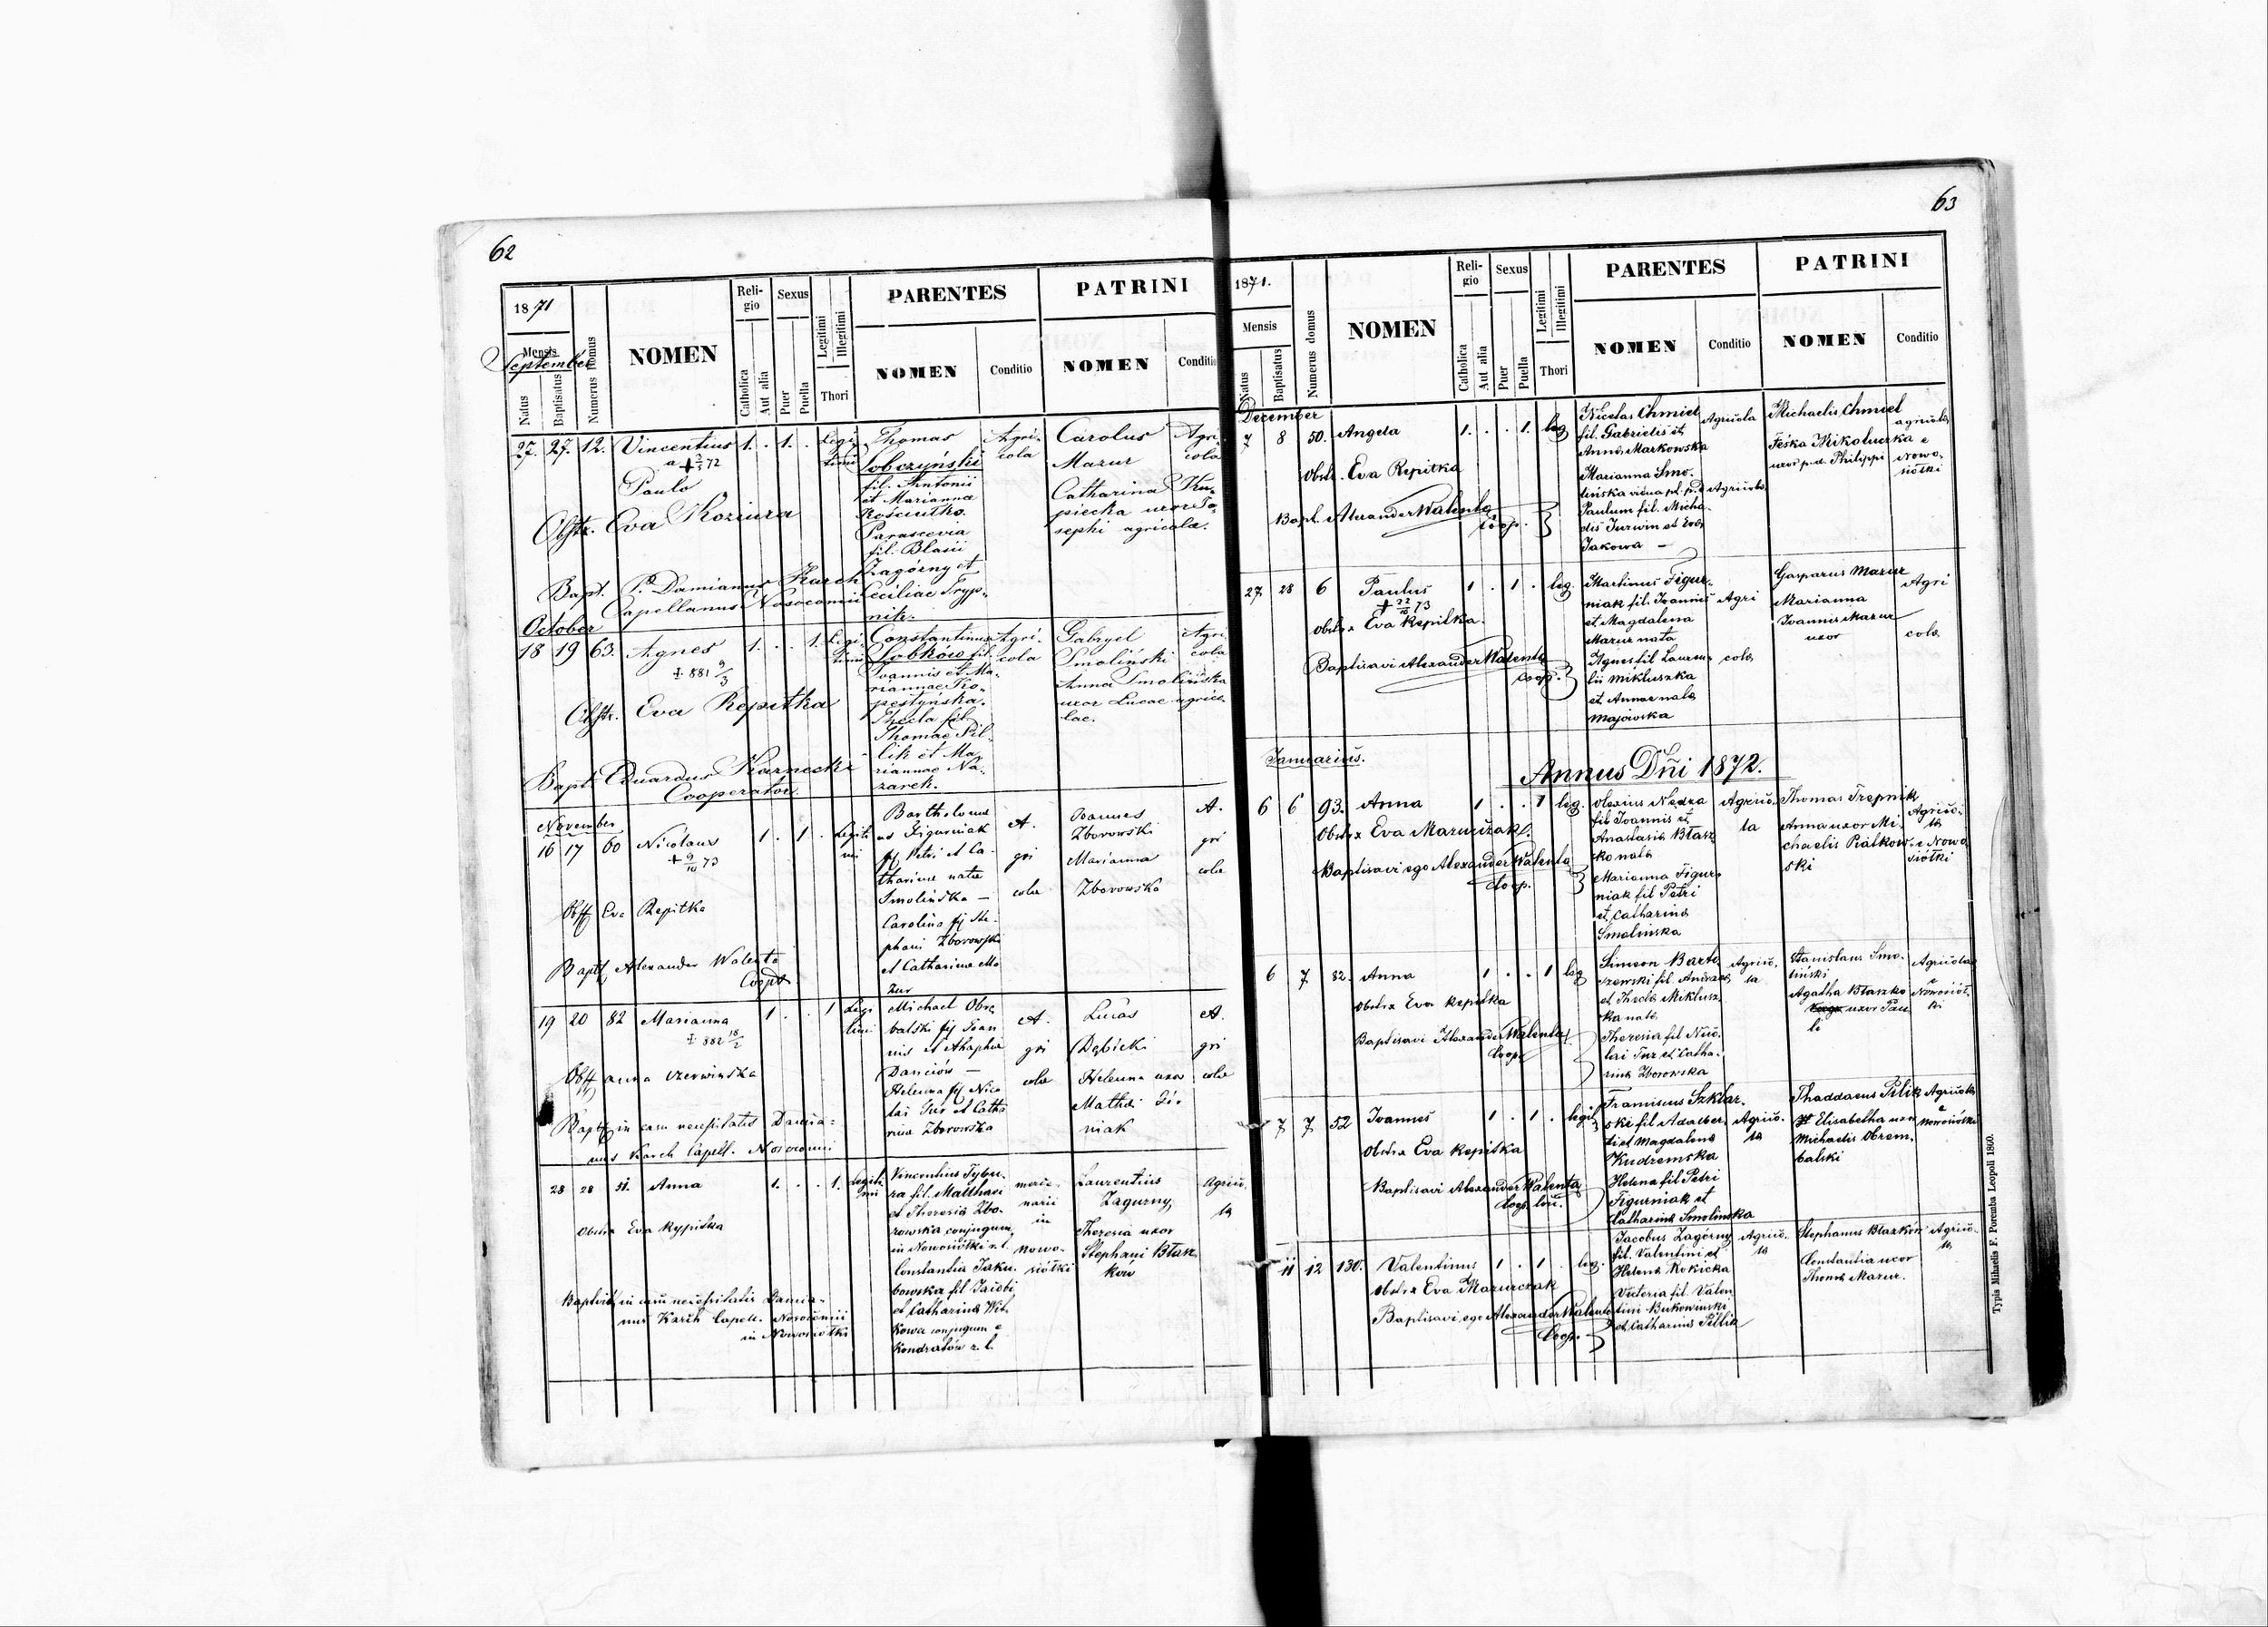 62
1871
Mensis
September
Natus
Baptisatus
Numerus domus
NOMEN
Religio
Catholica
Aut alia
Sexus
Puer
Puella
Legitimi
Illegitimi
Thori
PARENTES
NOMEN
Conditio
PATRINI
NOMEN
Conditio
27. 27. 12. Vincentius 1. . 1. . Legi
timi
a + 2/5 72
Paulo
Obstr. Eva Koziura
Bapt. P. Damianus Karch
Capellanus Nosocomii
Thomas
Sobczyński
fil. Antonii
et Marianna
Kościutko.
Parascevia
fil. Blasii
Zagórny et
Ceciliae Tryp-
nik.
Agri-
cola
Carolus
Mazur
Catharina Ku-
psiecka uxor Jo-
sephi agricola.
Agri
cola
October
18 19 63. Agnes 1. . . 1. Legi
timi
‡ 881 9/3
Obstr. Eva Repitka
Bapt. Eduardus Karnecki
Cooperator.
Constantinus
Sobków fil.
Joannis et Ma-
riannae Ko-
pestynska.
Thecla fil.
Thomae Pil-
lik et Ma-
riannae Na-
zarek.
Agri-
cola
Gabryel
Smoliński
Anna Smolińska
uxor Lucae agrico-
lae.
Agri
cola
November
16 17 60 Nicolaus 1. . 1. . Legiti
mi
+ 9/10 73
Obst Eva Repitka
Bapt Alexander Walenta
Coop
Bartholomae
us Figurniak
fil Petri et Ca-
tharinae natae
Smolińska —
Carolina fil Ste-
phani Zborowski
et Catharinae Ma
zur
A.
gri
colae
Joannes
Zborowski
Marianna
Zborowska
A.
gri
colae
19 20 82 Marianna 1. . . 1 Legi
timi
‡ 882 18/2
Obst Anna Czerwinska
Bapt in casu necessitatis Damia-
nus Karch Capell. Nosocomii
Michael Obrę
balski fil Joan
nis et Ahaphia
Danciów —
Helenna fil Nico
lai Tur et Catha
rina Zborowska
A.
gri
colae
Lucas
Dębicki
Helenna uxo
Mathei Fi-
niak
A.
gri
colae
28 28 51. Anna 1. . . 1. Legiti
mi
Obstrx Eva Rypitka
Baptisit in casu necessitatis Damia-
nus Karch Capell. Nosocomii
in Nowosiółki
Vincentius Tybu-
ra fil. Matthaei
et Theresia Zbo-
rowska conjugum
in Nowosiółki r. l.
Constantia Jaku-
bowska fil Jacobi
et Catharina Wit-
kowa conjugum e
Kondratów r. l.
merce-
narii
in
Nowo-
siółki
Laurentius
Zagurny
Theresia uxor
Stephani Błasz-
ków
Agrico-
la
63
1871.
Mensis
Natus
Baptisatus
Numerus domus
NOMEN
Religio
Catholica
Aut alia
Sexus
Puer
Puella
Legitimi
Illegitimi
Thori
PARENTES
NOMEN
Conditio
PATRINI
NOMEN
Conditio
December
7 8 50. Angela 1. . . 1. leg
Obstr. Eva Repitka
Bapt. Alexander Walenta
Coop.
Nicolas Chmiel
fil. Gabrielis et
Anna Markowska
Marianna Smo-
lińska vidua pt. p. d
Paulum fil. Micha-
elis Turwin et Eva
Jakowa —
Agricola
Agricola
Michaelis Chmiel
Feśka Mikoluszka
uxor p. d. Philippi
agricola
e
Nowo-
siółki
27 28 6 Paulus 1 . 1 . leg.
+ 22/10 73
Obstrx Eva Repitka.
Baptisavi Alexander Walenta
Coop.
Martinus Figur-
niak fil. Joannis
et Magdalena
Mazur nata
Agnes fil Lauren-
tii Mikluszka
et Annae nata
Majowska
Agri
cola
Gasparus Mazur
Marianna
Joannis Mazur
uxor
Agri
cola
Januarius.
Annus Dñi 1872.
6 6 93. Anna 1 . . 1 leg.
Obstrx Eva Mazurczak.
Baptisavi ego Alexander Walenta
Coop.
Olexius Nędza
fil Joannis et
Anastasia Błasz
ko nata
Marianna Figur-
niak fil Petri
et Catharina
Smolinska
Agrico-
la
Thomas Trepnik
Anna uxor Mi-
chaelis Piatkow-
ski
Agrico-
la
e Nowo
siółki
6 7 82. Anna 1 . . 1 leg
Obstrx Eva Repitka
Baptisavi Alexander Walenta
Coop.
Simeon Barto
szewski fil. Andreae
et Thecla Miklusz
ka nata
Theresia fil Nico-
lai Tur et Catha-
rina Zborowska
Agrico-
la
Stanislaus Smo-
liński
Agatha Błaszko
uxor Pau
li
Agricola
e
Nowosiół-
ki
7 7 52 Joannes 1 . 1 . legit
Obstrx Eva Repitka
Baptisavi Alexander Walenta
Coop. loci.
Franciscus Szklar-
ski fil Adalber-
ti et Magdalena
Kudremska
Helena fil Petri
Figurniak et
Catharina Smolinska
Agrico-
la
Thaddaeus Pilik
Elisabetha uxor
Michaelis Obrem-
balski
Agricola
e
Nowosiółki
11 12 130. Valentinus 1 . 1 . leg.
Obstrx Eva Mazurczak
Baptisavi ego Alexander Walenta
Coop.
Jacobus Zagórny
fil. Valentini et
Helena Rokicka
Victeria fil. Valen
tini Bukowinski
et Catharina Pillik
Agrico-
la
Stephanus Błazków
Constantia uxor
Thoma Mazur.
Agrico-
la
Typis Mihaelis F. Poremba Leopoli 1860.